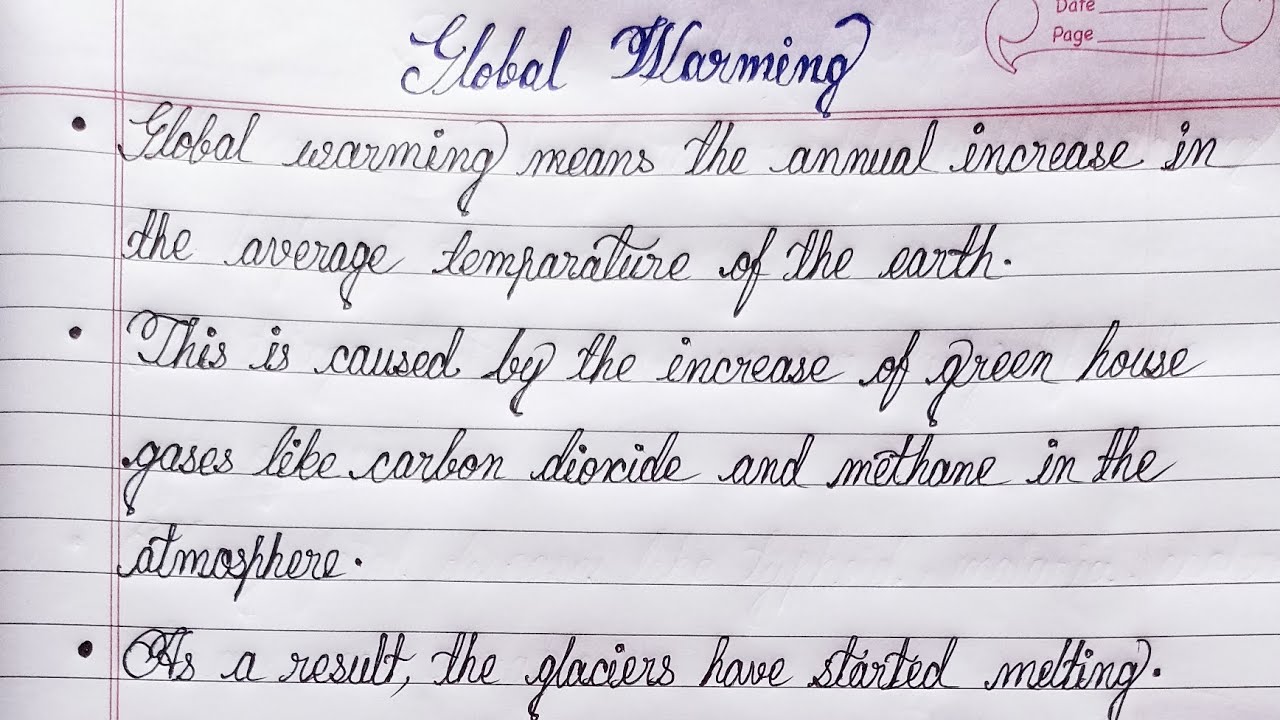 Date
Page
Global Warming
• Global warming means the annual increase in
the average temparature of the earth.
• This is caused by the increase of green house
gases like carbon dioxide and methane in the
atmosphere.
• As a result, the glaciers have started melting.